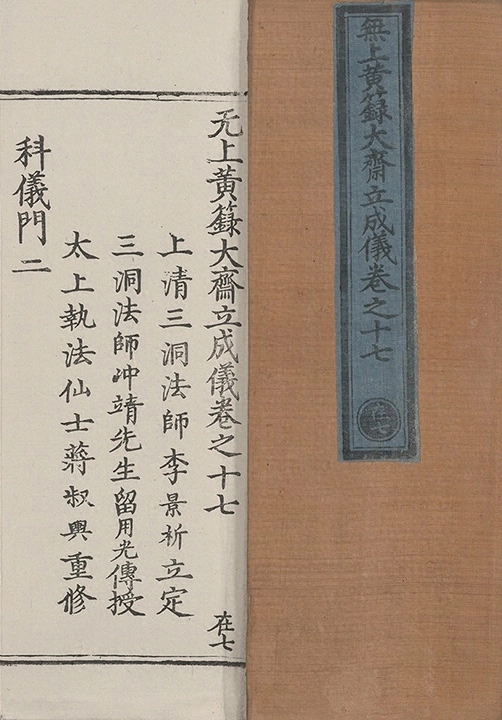 無上黄籙大齋立成儀卷之十七
在七
无上黄籙大齋立成儀卷之十七
在七
上清三洞法師李景祈立定
三洞法師冲靖先生留用光傳授
太上執法仙士蔣叔輿重修
科儀門二